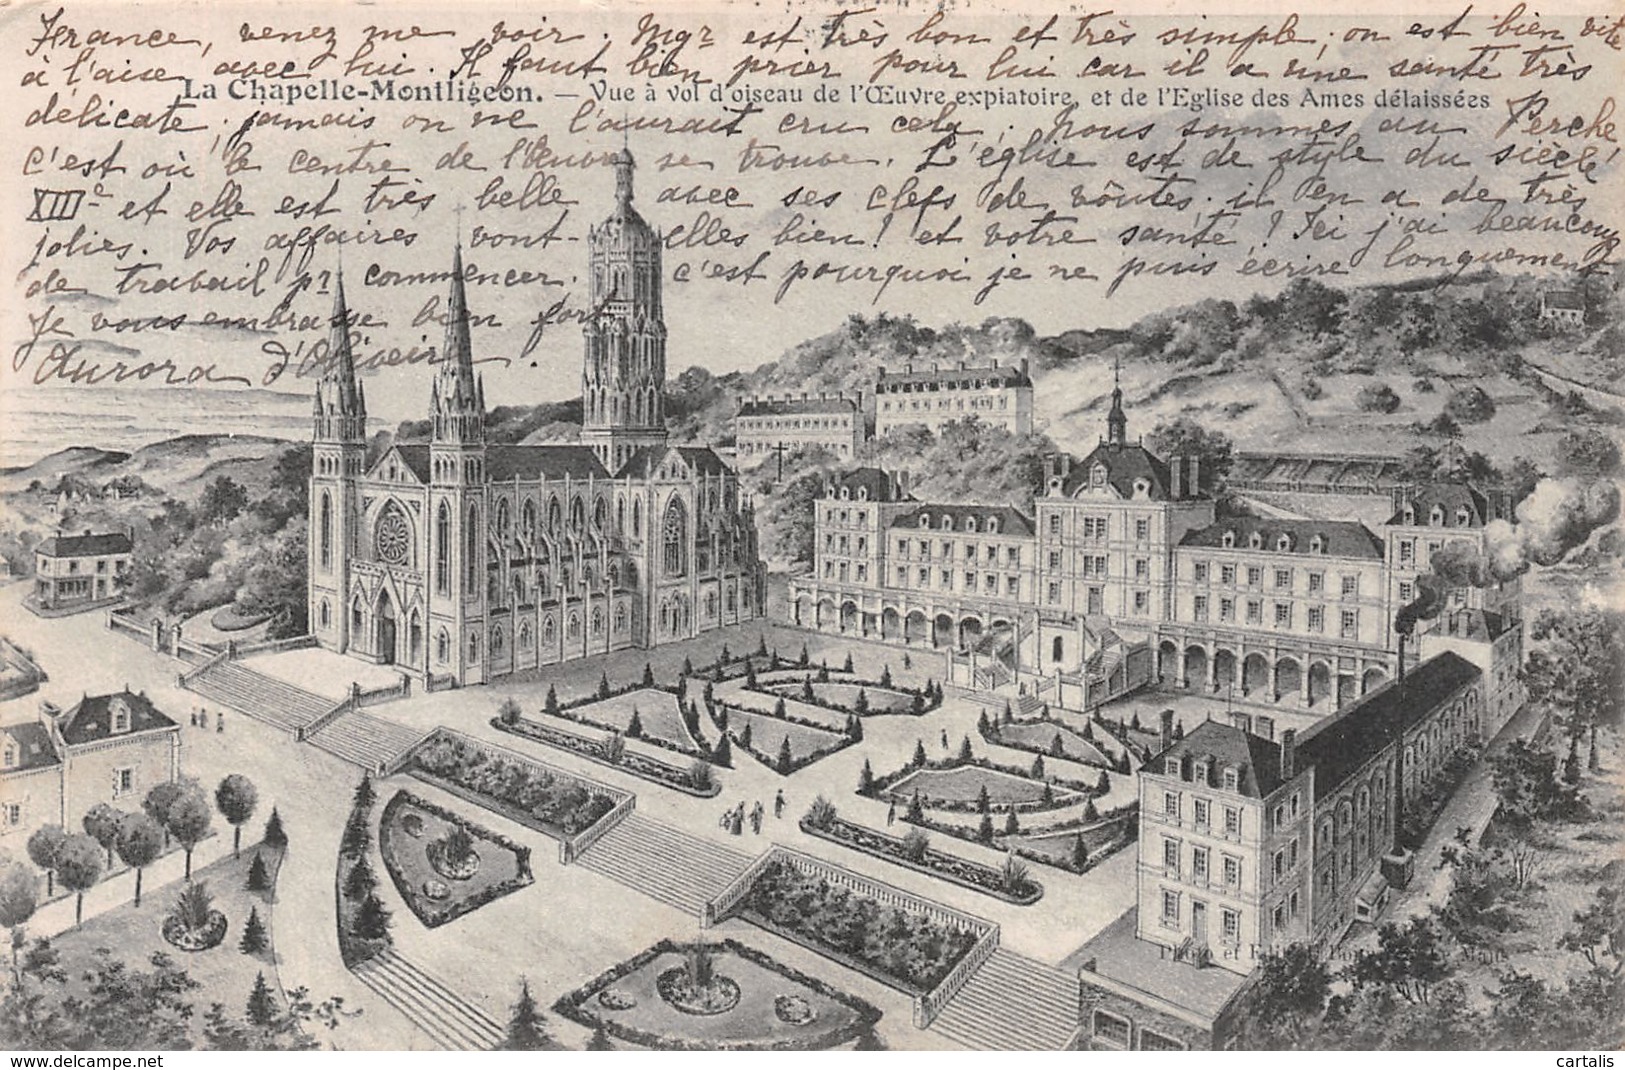 France, venez me voir. Mgr est très bon et très simple; on est bien vite
à l'aise avec lui. Il faut bien prier pour lui car il a une santé très
La Chapelle-Montligeon. — Vue à vol d'oiseau de l'Œuvre expiatoire, et de l'Eglise des Ames délaissées
délicate; jamais on ne l'aurait cru cela; Nous sommes au Perche,
c'est où le centre de l'Œuvre se trouve. L'église est de style du siècle
XIIIe et elle est très belle avec ses clefs de vôutes; il en a de très
jolies. Vos affaires vont-elles bien! et votre santé! Ici j'ai beaucoup
de travail pr commencer. c'est pourquoi je ne puis écrire longuement
Je vous embrasse bien fort
Aurora d'Oliveira.
Photo et Edit. Le Mans
www.delcampe.net
cartalis